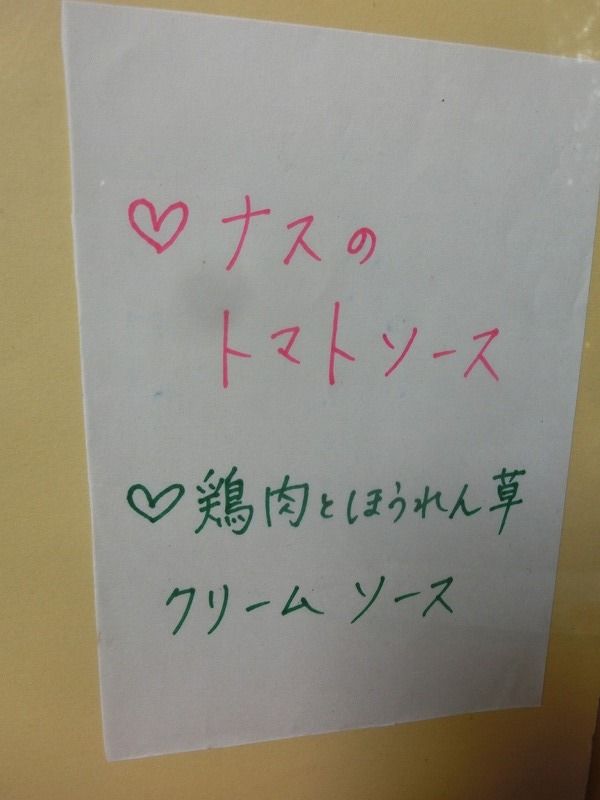 ♡ ナスの
トマトソース
♡ 鶏肉とほうれん草
クリーム ソース